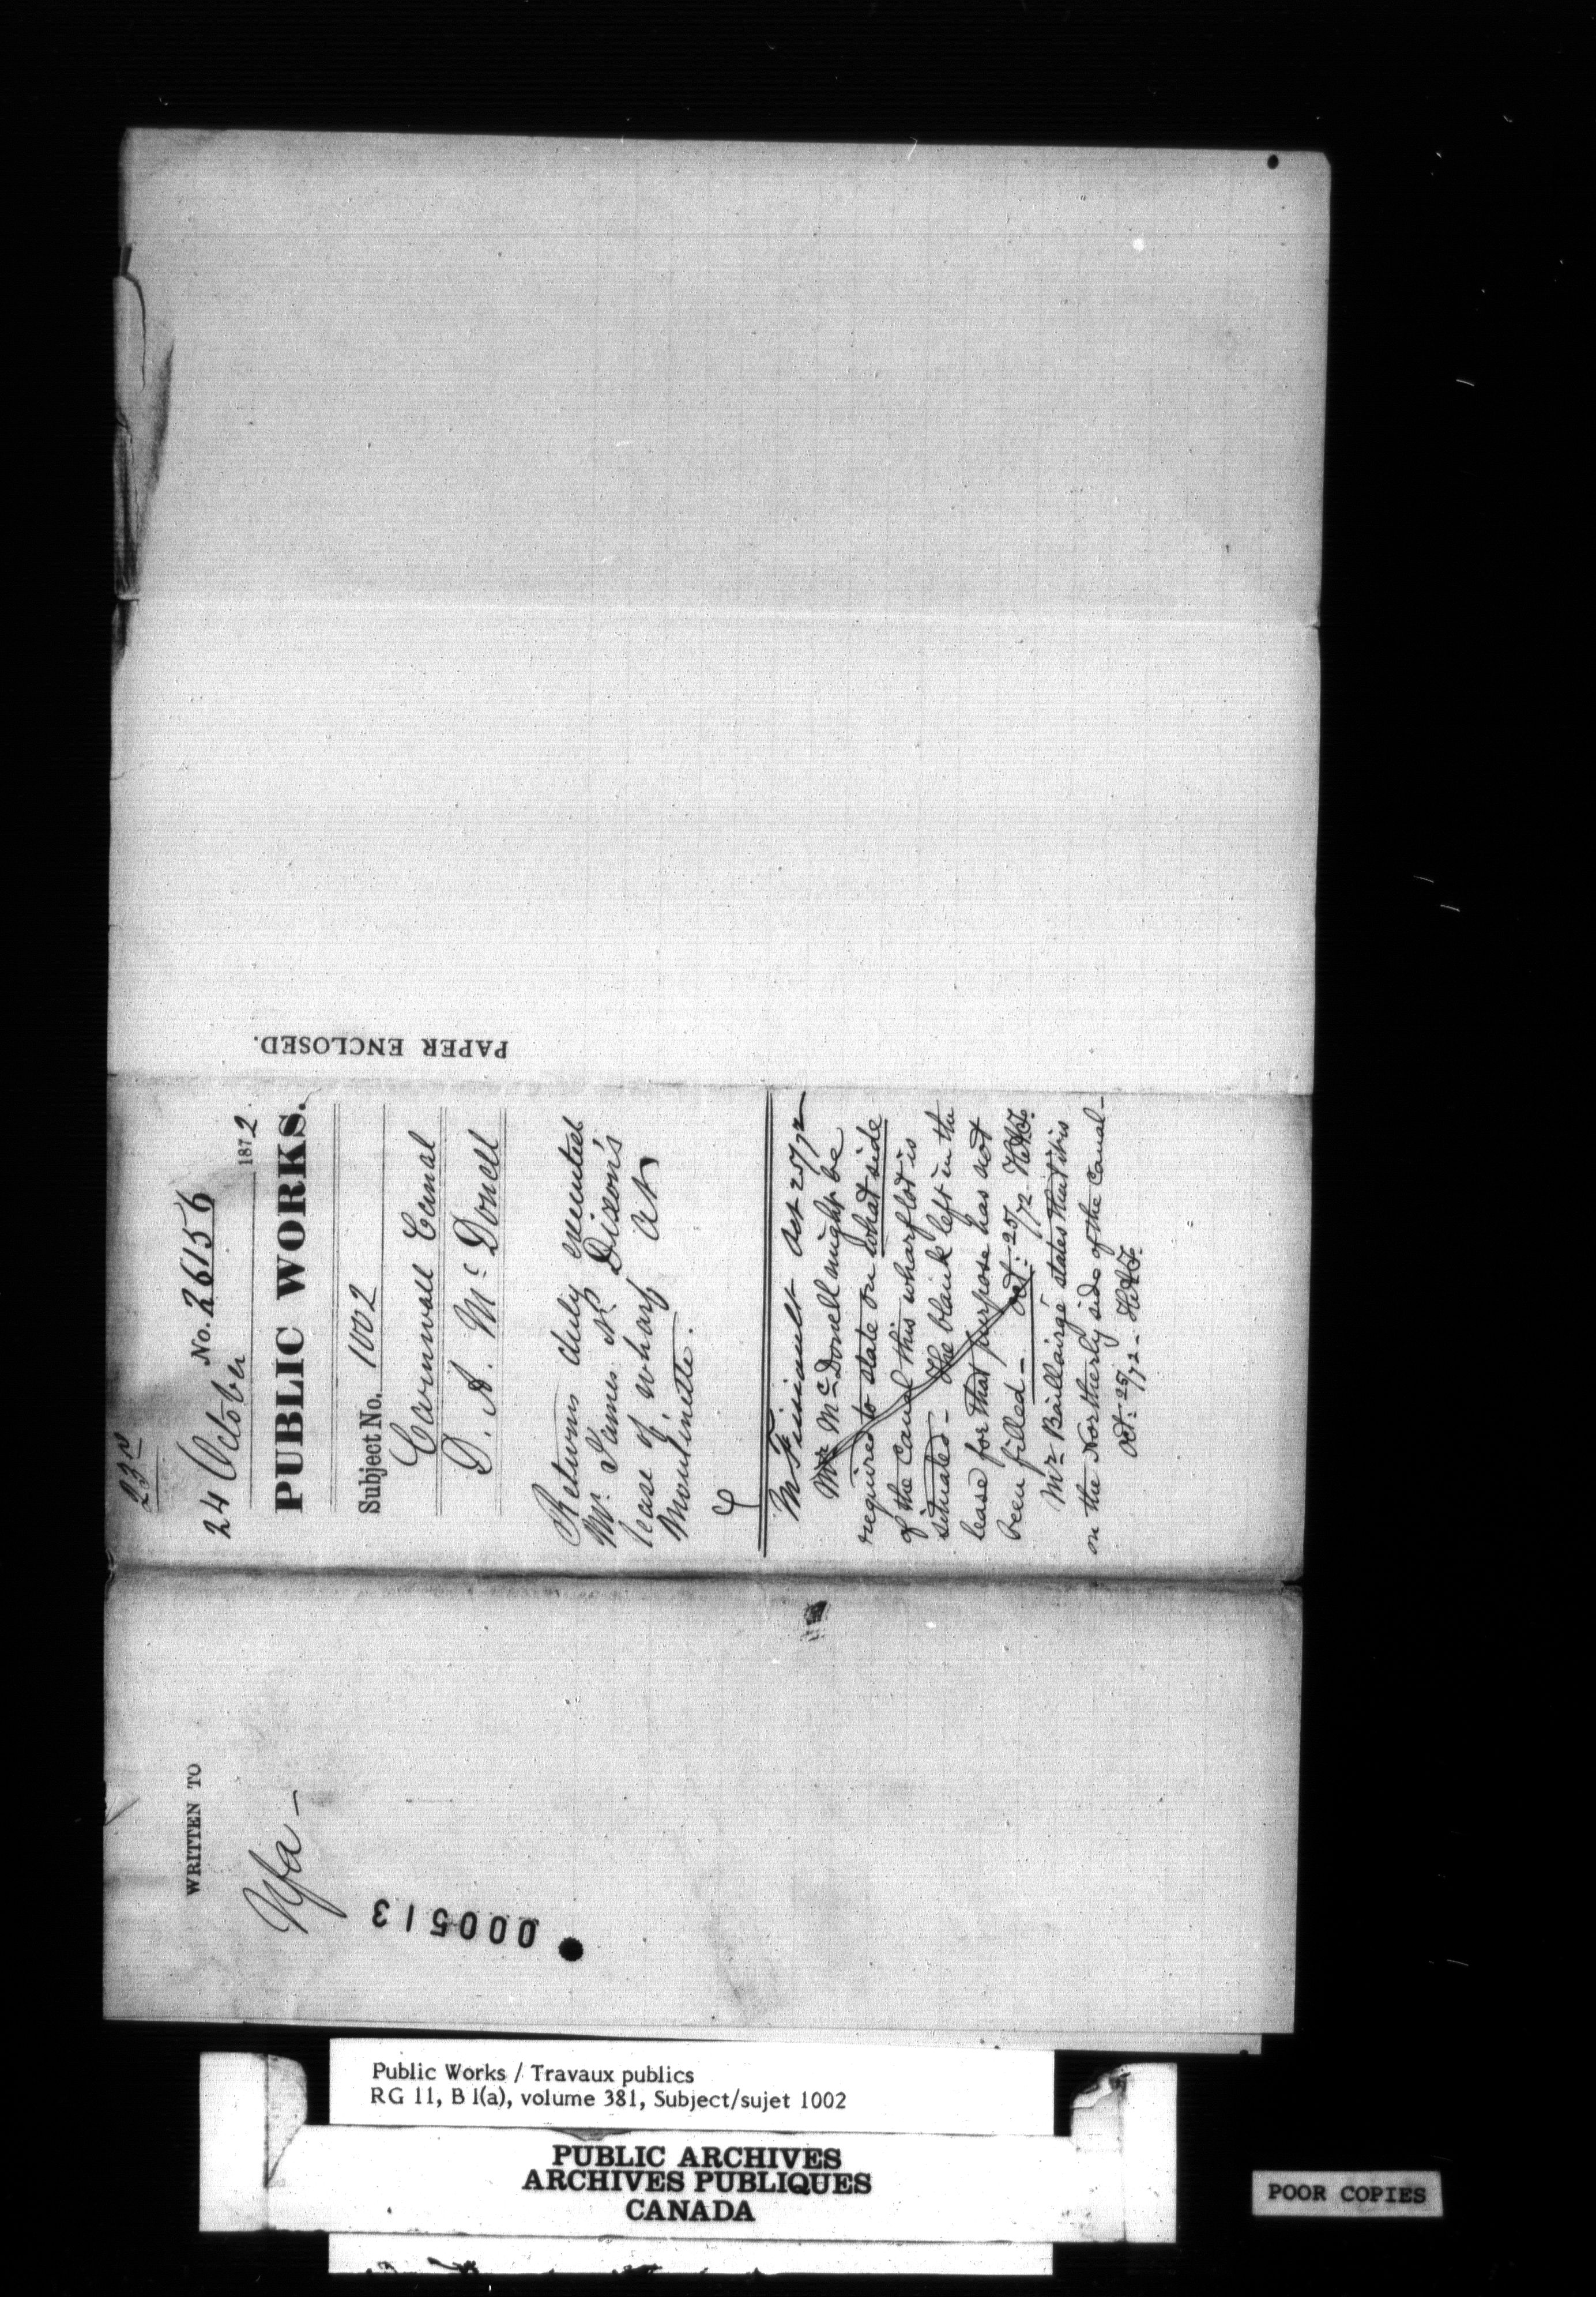 23rd
No. 26156
24 October 1872.
PUBLIC WORKS.
Subject No. 1002
Cornwall Canal
D. A. McDonell
Returns duly executed
Mr. James N. Dixon's
lease of wharf at
Moulinette.
Oct 25/72
Mr McDonell ought be
required to state on what side
of the Canal this wharf lot is
situated - The blank left in the
lease for that purpose has not
been filled - Oct: 25/72
Mr Baillairgé states that it is
on the Northerly side of the Canal -
Oct: 25/72 -
PAPER ENCLOSED.
WRITTEN TO
Nfa -
000513
Public Works / Travaux publics
RG 11, B 1(a), volume 381, Subject/sujet 1002
PUBLIC ARCHIVES
ARCHIVES PUBLIQUES
CANADA
POOR COPIES